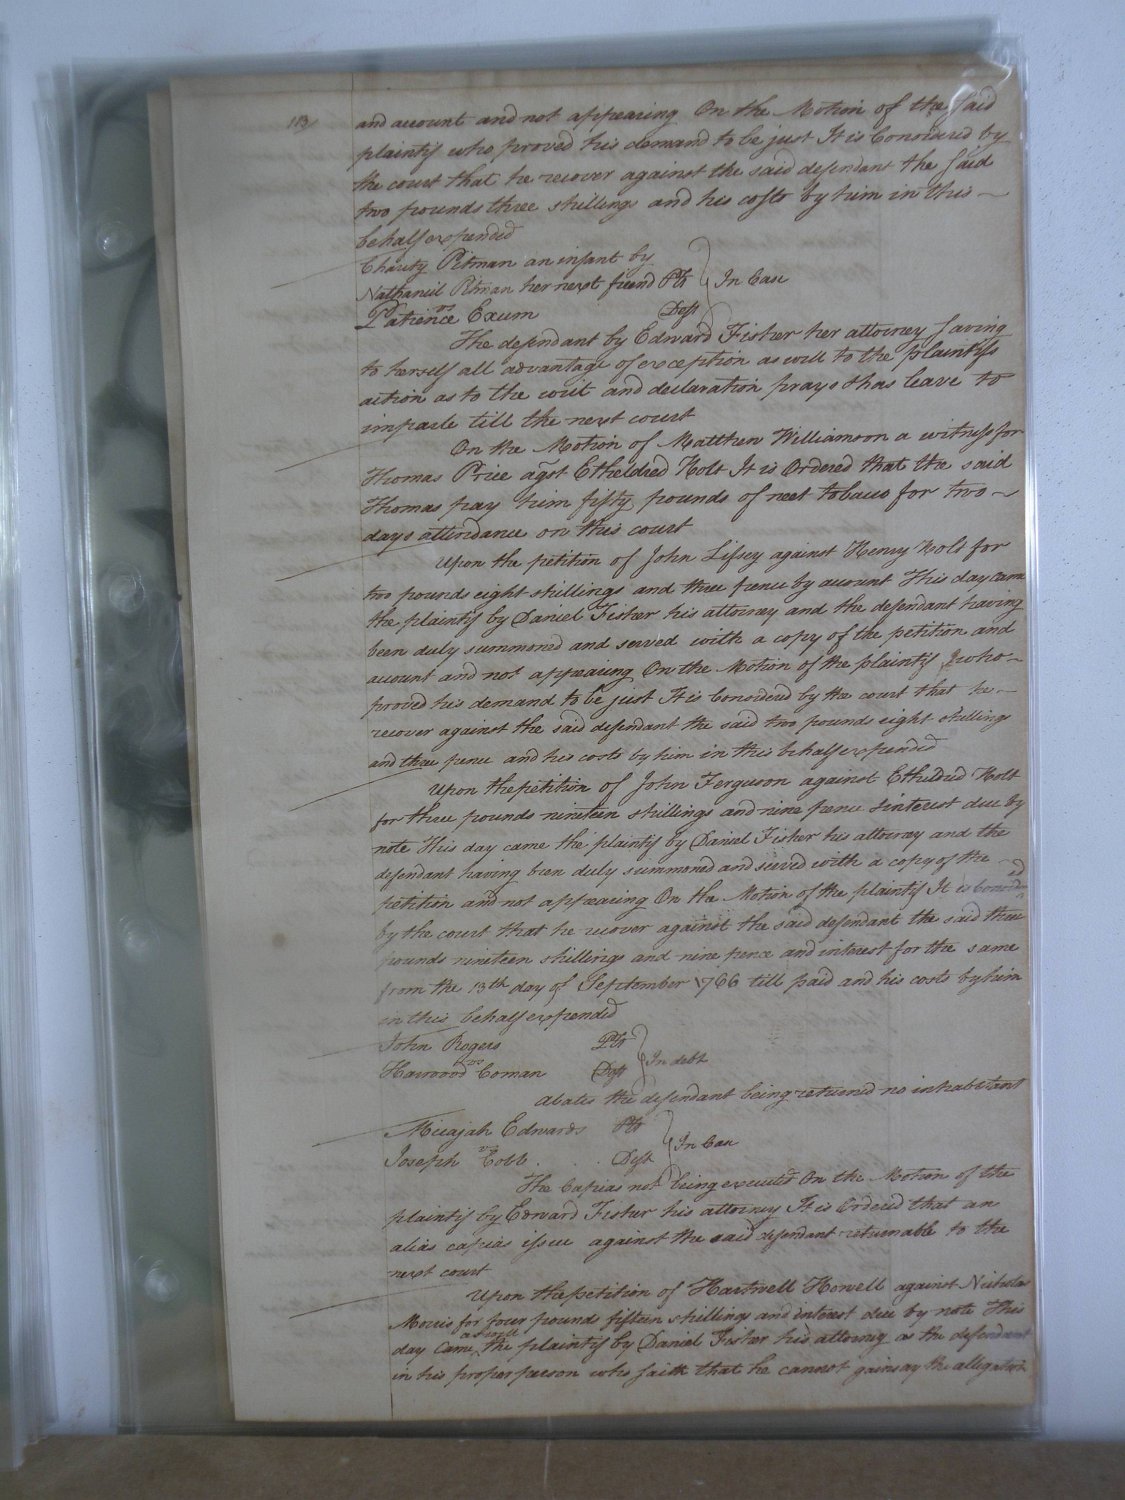 113/
and account and not appearing On the Motion of the said
plaintif who proved his demand to be just It is Considered by
the court that he recover against the said defendant the said
two pounds three shillings and his costs by him in this
behalf expended
Charity Pitman an infant by
Nathaniel Pitman her next friend Pltf } In Case
vs
Patience Exum Deft
The defendant by Edward Fisher her attorney saving
to herself all advantage of exception as well to the plaintifs
action as to the writ and declaration prays & has leave to
imparle till the next court
On the Motion of Matthew Williamson a witness for
Thomas Price agst Etheldred Holt It is Ordered that the said
Thomas pay him fifty pounds of neet tobacco for two
days attendance on this court
Upon the petition of John Lifsey against Henry Holt for
two pounds eight shillings and three pence by account This day came
the plaintif by Daniel Fisher his attorney and the defendant having
been duly summoned and served with a copy of the petition and
account and not appearing On the Motion of the plaintif who
proved his demand to be just It is Considered by the court that he
recover against the said defendant the said two pounds eight shillings
and three pence and his costs by him in this behalf expended
Upon the petition of John Ferguson against Etheldred Holt
for three pounds nineteen shillings and nine pence & interest due by
note This day came the plaintif by Daniel Fisher his attorney and the
defendant having been duly summoned and served with a copy of the
petition and not appearing On the Motion of the plaintif It is Considered
by the court that he recover against the said defendant the said three
pounds nineteen shillings and nine pence and interest for the same
from the 13th day of September 1766 till paid and his costs by him
in this behalf expended
John Rogers Pltf } In debt
vs
Harwood Coman Deft
Abates the defendant being returned no inhabetant
Micajah Edwards Pltf } In Case
vs
Joseph Cobb Deft
The Capias not being executed On the Motion of the
plaintif by Edward Fisher his attorney It is Ordered that an
alias capias issue against the said defendant returnable to the
next court
Upon the petition of Hartwell Howell against Nicholas
Morris for four pounds fifteen shillings and interest due by note This
day came as well the plaintif by Daniel Fisher his attorney as the defendant
in his proper person who saith that he cannot gainsay the allegations